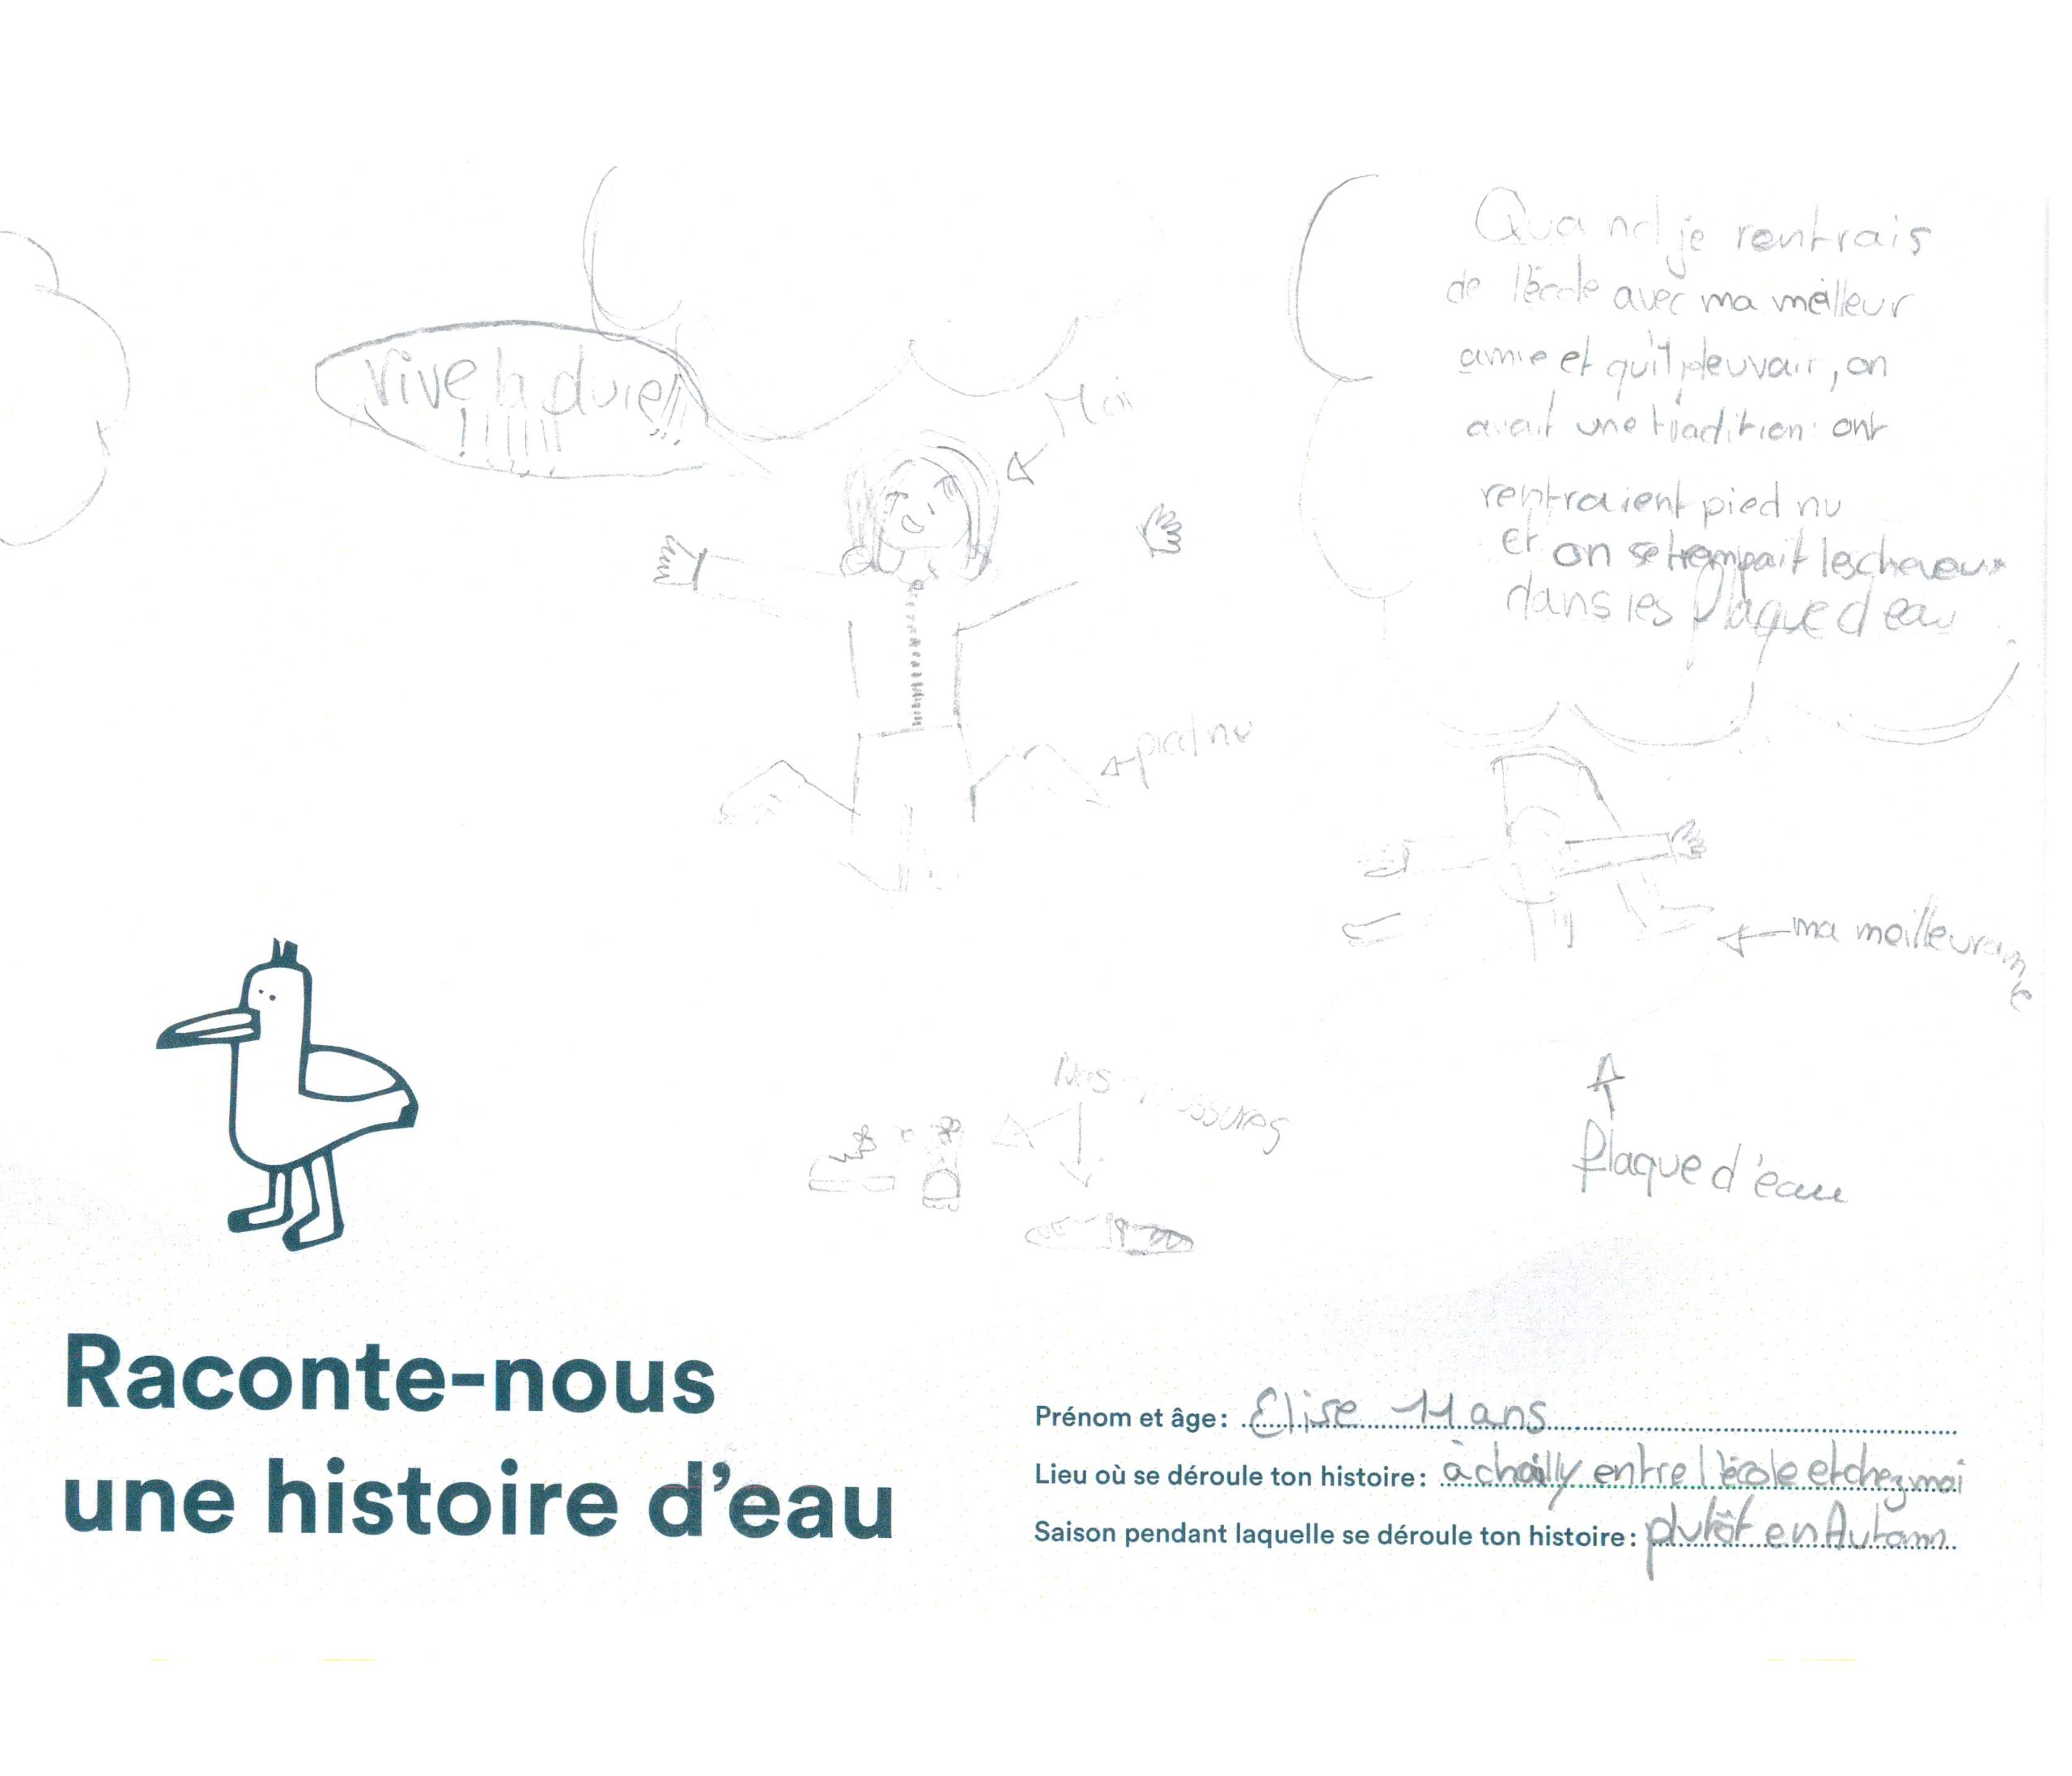 Quand je rentrais
de l'école avec ma meilleur
amie et qu'il pleuvair, on
avait une tradition: ont
rentraient pied nu
et on se trempait les cheveux
dans les plaque d'eau
vive la duie!!!
!!!!!!
Moi
pied nu
ma meilleur amie
Nos
plaque d'eau
Raconte-nous
une histoire d'eau
Prénom et âge: Elise 11 ans
Lieu où se déroule ton histoire: à chailly entre l'école et chez moi
Saison pendant laquelle se déroule ton histoire: plutôt en Autom